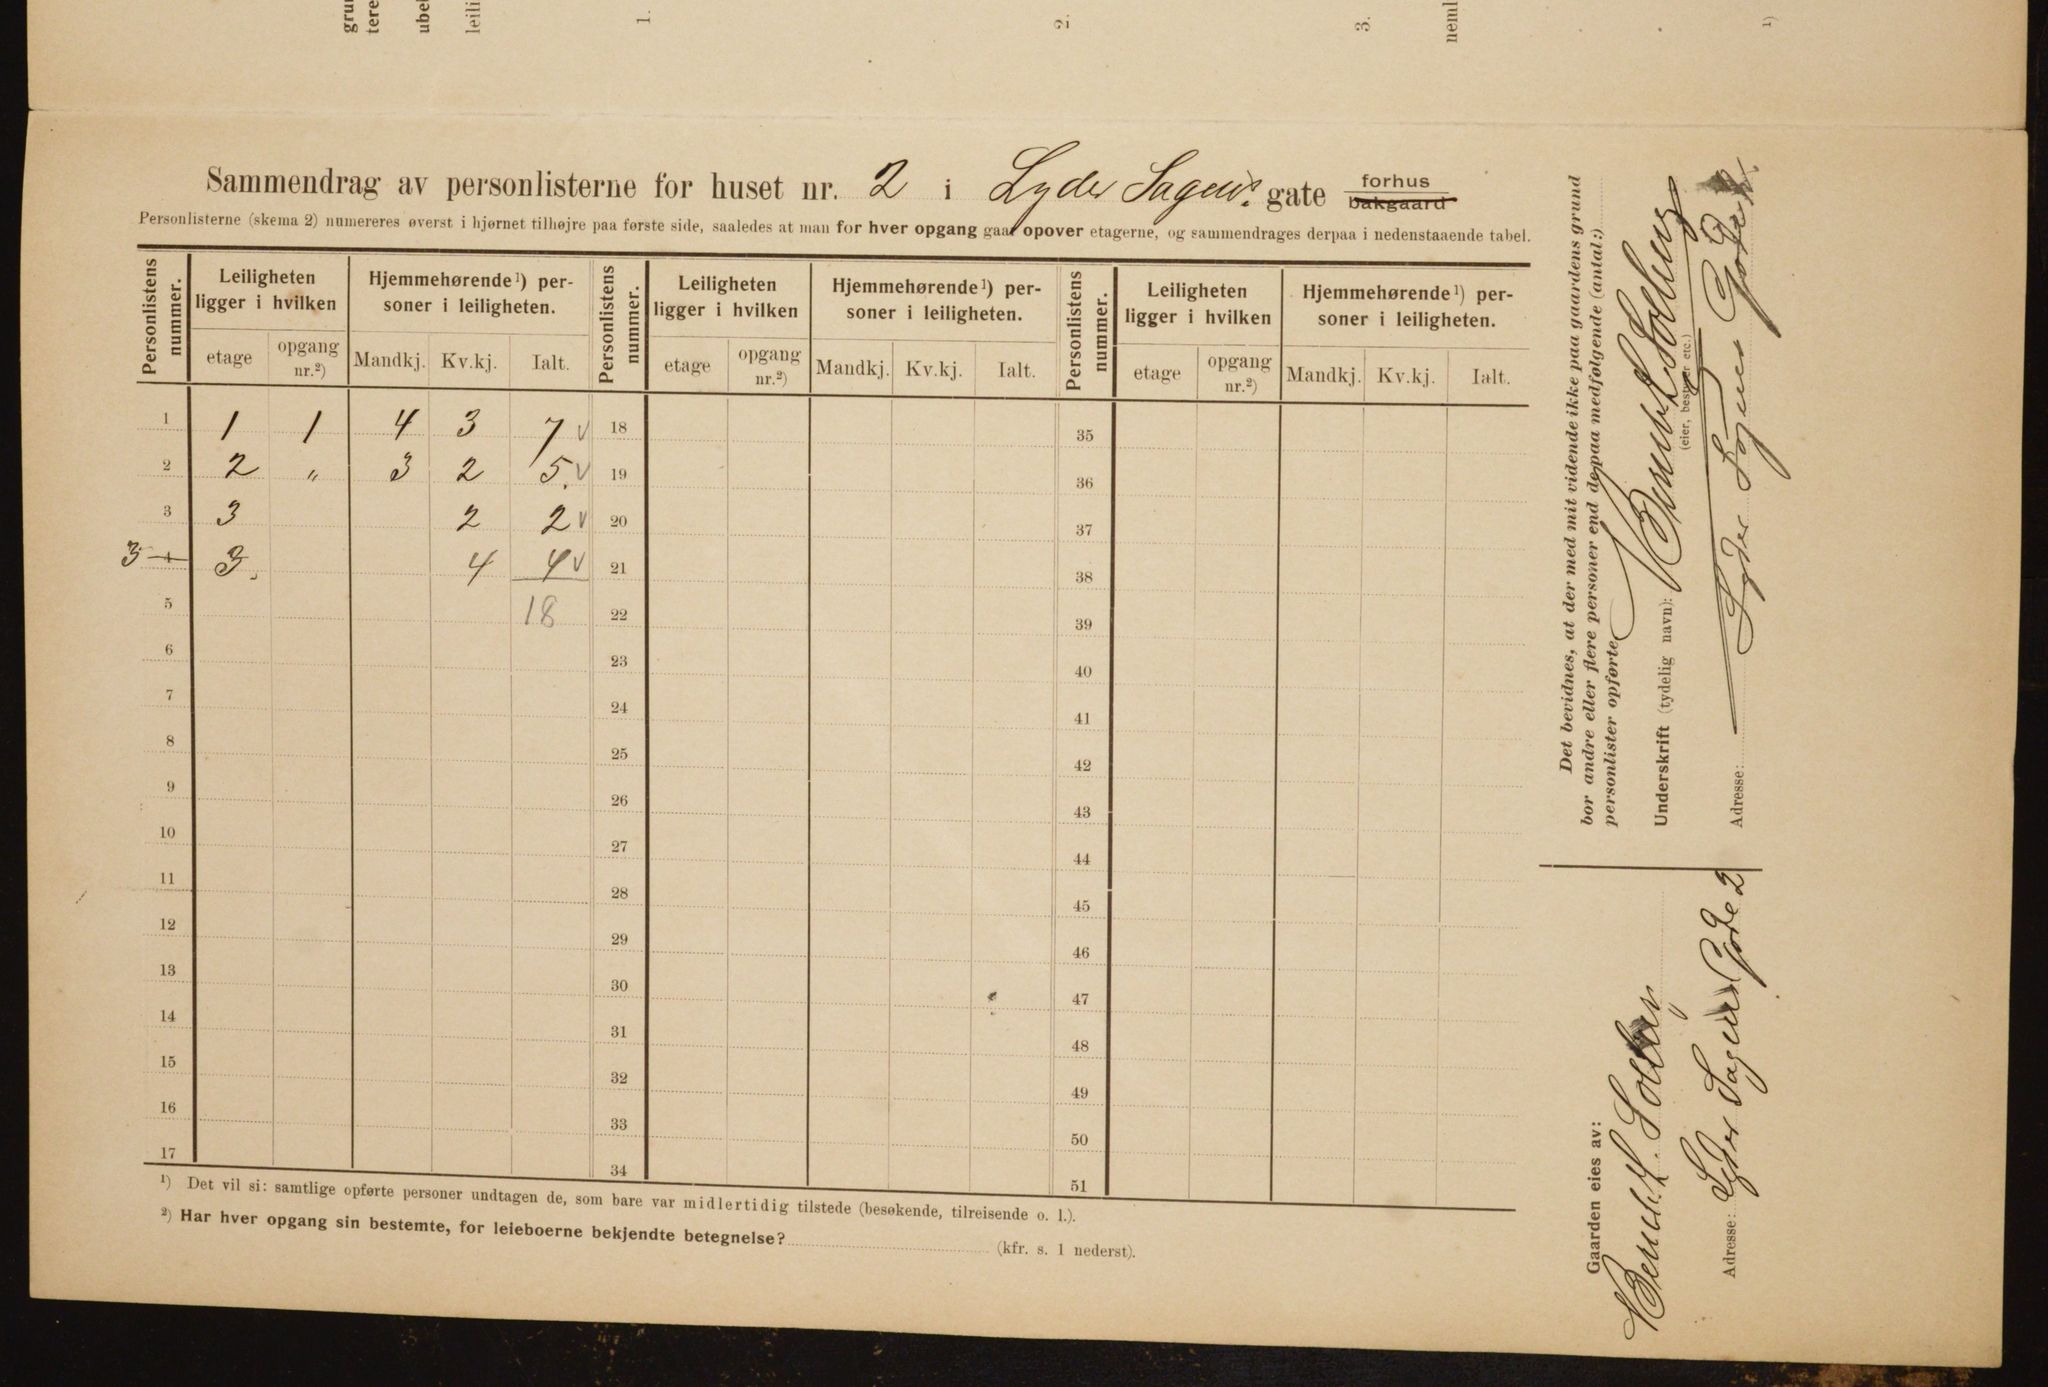 gru
tere
ubel
leili
1.
2.
3.
neml
1)
Sammendrag av personlisterne for huset nr. 2 i Lyder Sagens gate forhus bakgaard
Personlisterne (skema 2) numereres øverst i hjørnet tilhøjre paa første side, saaledes at man for hver opgang gaar opover etagerne, og sammendrages derpaa i nedenstaaende tabel.
Personlistens nummer. Leiligheten ligger i hvilken Hjemmehørende 1) personer i leiligheten. Personlistens nummer. Leiligheten ligger i hvilken Hjemmehørende 1) personer i leiligheten. Personlistens nummer. Leiligheten ligger i hvilken Hjemmehørende 1) personer i leiligheten.
etage opgang nr.2) Mandkj. Kv.kj. Ialt. etage opgang nr.2) Mandkj. Kv.kj. Ialt. etage opgang nr.2) Mandkj. Kv.kj. Ialt.
1 1 1 4 3 7 v 18 35
2 2 „ 3 2 5. v 19 36
3 3 2 2 v 20 37
3 4 3. 4 4 v 21 38
5 18 22 39
6 23 40
7 24 41
8 25 42
9 26 43
10 27 44
11 28 45
12 29 46
13 30 47
14 31 48
15 32 49
16 33 50
17 34 51
1) Det vil si: samtlige opførte personer undtagen de, som bare var midlertidig tilstede (besøkende, tilreisende o. l.).
2) Har hver opgang sin bestemte, for leieboerne bekjendte betegnelse? (kfr. s. 1 nederst).
Det bevidnes, at der med mit vidende ikke paa gaardens grund
bor andre eller flere personer end de paa medfølgende (antal:)
personlister opførte
Underskrift (tydelig navn):
(eier, bestyrer etc.)
Adresse: Lyder Sagens Gate
Gaarden eies av:
Adresse: Lyder Sagens Gate 2